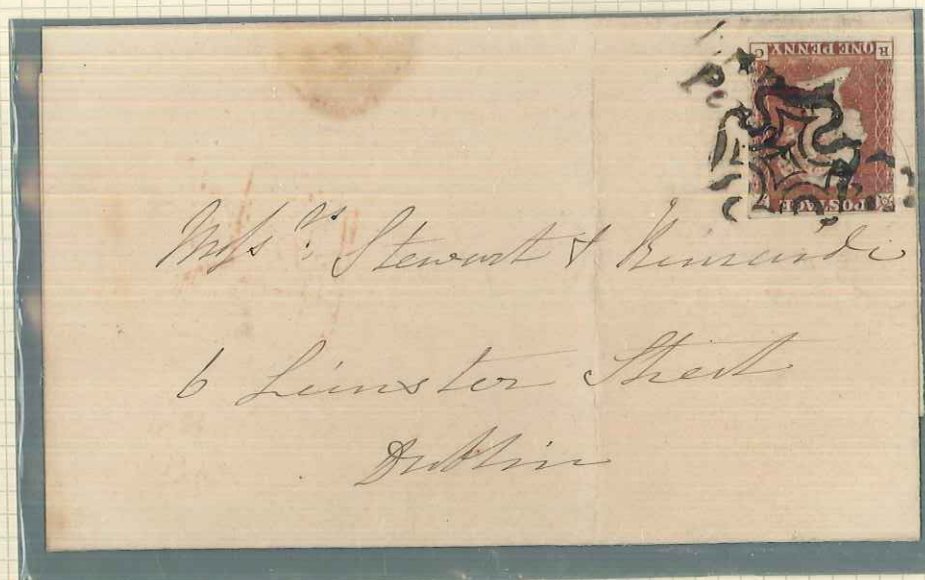 POSTAGE
ONE PENNY
Messrs Stewart &
6 Leinster Street
Dublin